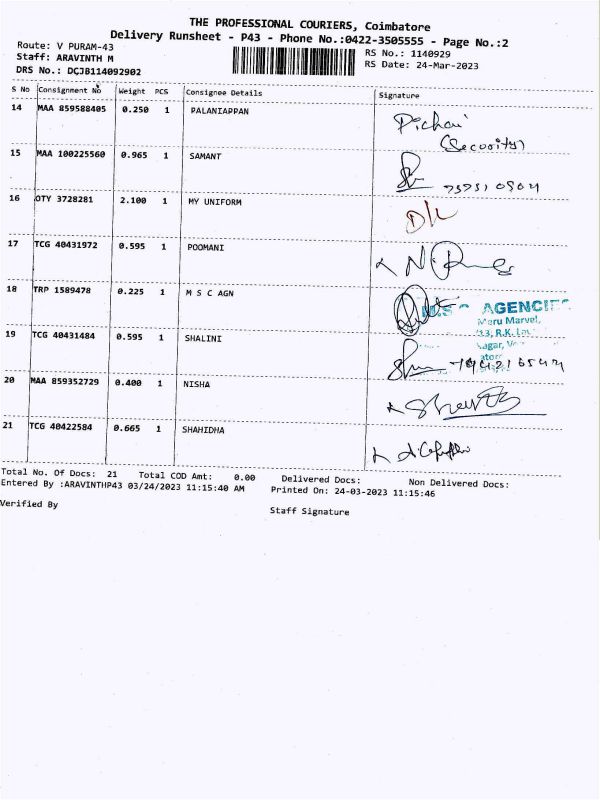 THE PROFESSIONAL COURIERS, Coimbatore
Delivery Runsheet - P43 - Phone No.:0422-3505555 - Page No.:2
Route: V PURAM-43
Staff: ARAVINTH M
DRS No.: DCJB114092902
RS No.: 1140929
RS Date: 24-Mar-2023
S No Consignment No Weight PCS Consignee Details Signature
14 MAA 859588405 0.250 1 PALANIAPPAN Pichai
(Security)
15 MAA 100225560 0.965 1 SAMANT
16 OTY 3728281 2.100 1 MY UNIFORM
17 TCG 40431972 0.595 1 POOMANI
18 TRP 1589478 0.225 1 M S C AGN
AGENCIES
Meru Marvel,
19 TCG 40431484 0.595 1 SHALINI
20 MAA 859352729 0.400 1 NISHA
21 TCG 40422584 0.665 1 SHAHIDHA
Total No. Of Docs: 21 Total COD Amt: 0.00 Delivered Docs: Non Delivered Docs:
Entered By :ARAVINTHP43 03/24/2023 11:15:40 AM Printed On: 24-03-2023 11:15:46
Verified By Staff Signature